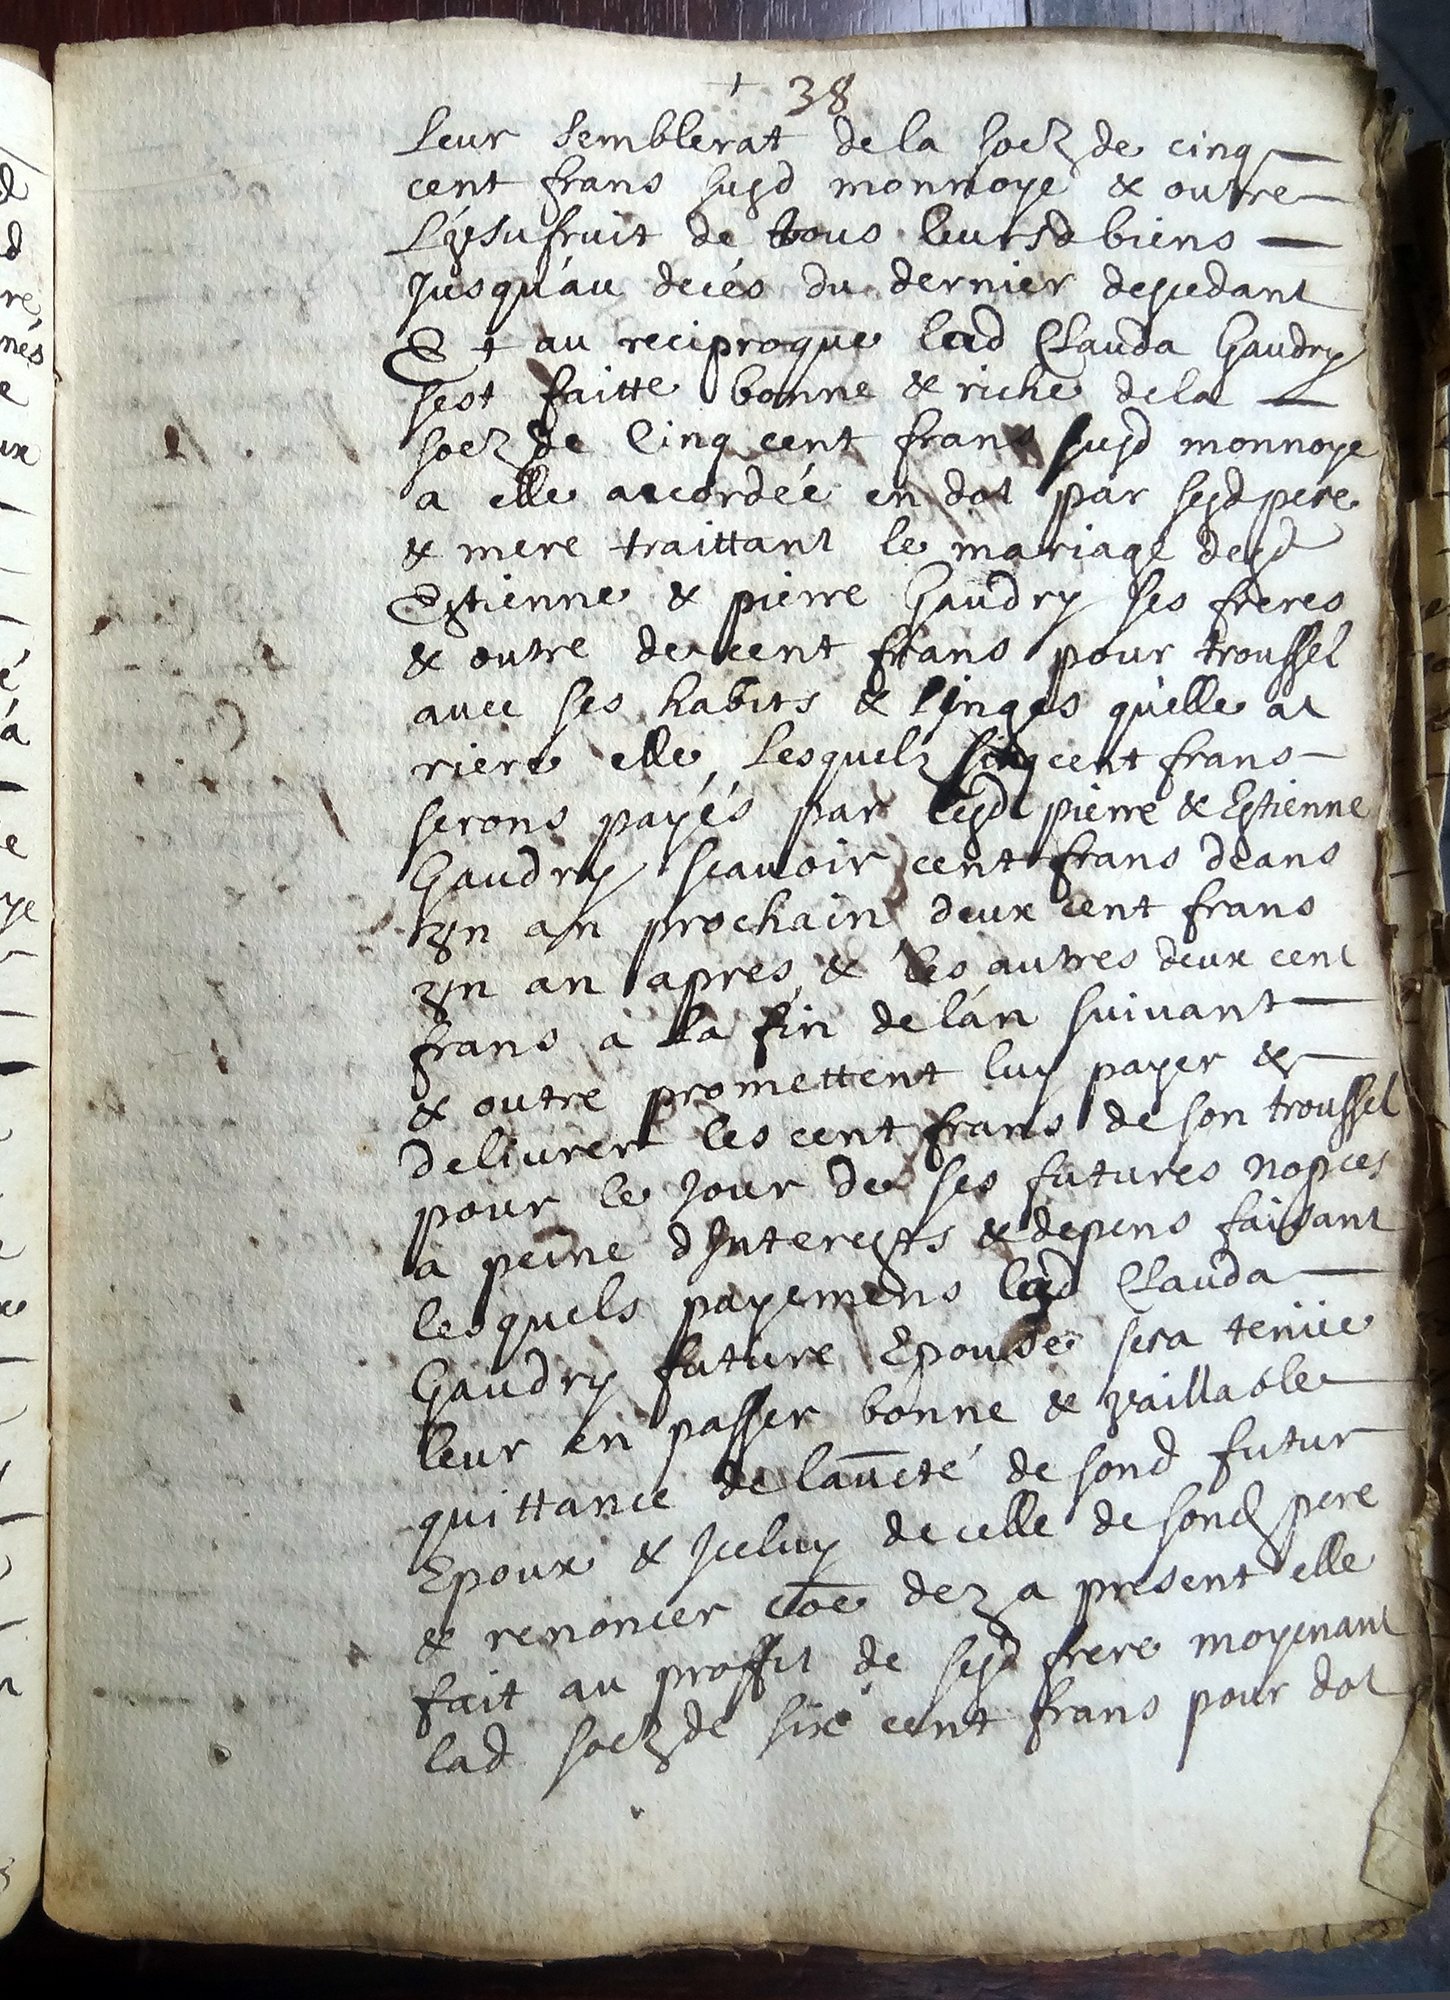 + 38
Leur semblerat de la soe de cinq
cent frans susd monnoye & outre
L'vsufruit de tous leursd biens
Jusqu'au decés du dernier decedant
Et au reciproque lad Clauda Gaudry
sest faitte bonne & riche de la
soe de Cinq cent frans susd monnoye
a elle accordée en dot par sesd pere
& mere traittant le mariage desd
Estienne & pierre Gaudry ses freres
& outre de cent frans pour troussel
avec ses habits & linges quelle at
riere elle, Lesquelz cinq cent frans
serons payés par lesd pierre & Estienne
Gaudry scauoir cent frans deans
vn an prochain deux cent frans
vn an apres & les autres deux cent
frans a la fin de lán suivant
& outre promettent luy payer &
deliurer les cent frans de son troussel
pour le Jour de ses futures nopces
a peine dInterests & depens faisant
lesquels payemens lad Clauda
Gaudry future Epouse sera tenüe
leur en passer bonne & vaillable
quittance de laucté de sond futur
Epoux & Jceluy de celle de sond pere
& renoncer coe dez a present elle
fait au proffit de sesd frere moyenant
lad soe de six cent frans pour dot